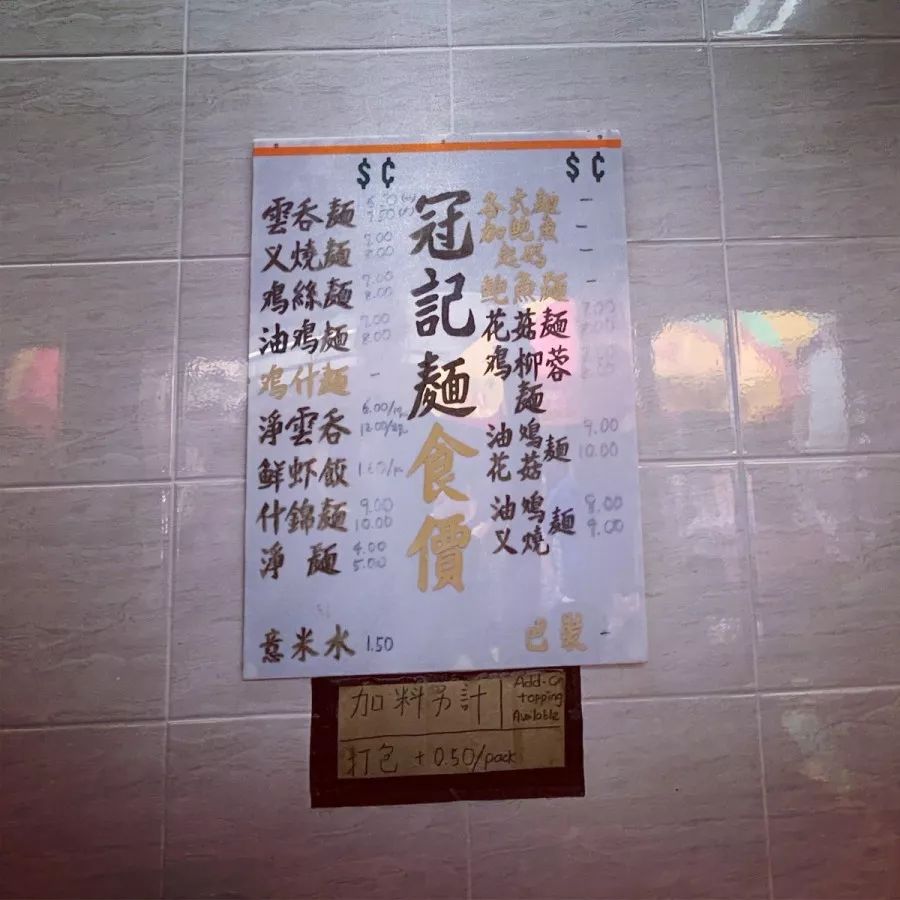 $ ¢
雲吞麵
7.50
叉燒麵 7.00
8.00
鸡絲麵 7.00
8.00
油鸡麵 7.00
8.00
鸡什麵 -
淨雲吞 6.00/
12.00/
鮮虾餃
什錦麵 9.00
10.00
淨麵 4.00
5.00
意米水 1.50
冠記麵食價
$ ¢
各式麵 -
加鲍魚 -
-
鲍魚麵 -
花菇麵 7.00
8.00
鸡柳蓉
麵
油鸡
花菇 麵 9.00
10.00
油鸡
叉燒 麵 8.00
9.00
巴裝 -
加料另計
Add-On
topping
Available
打包 + 0.50/pack